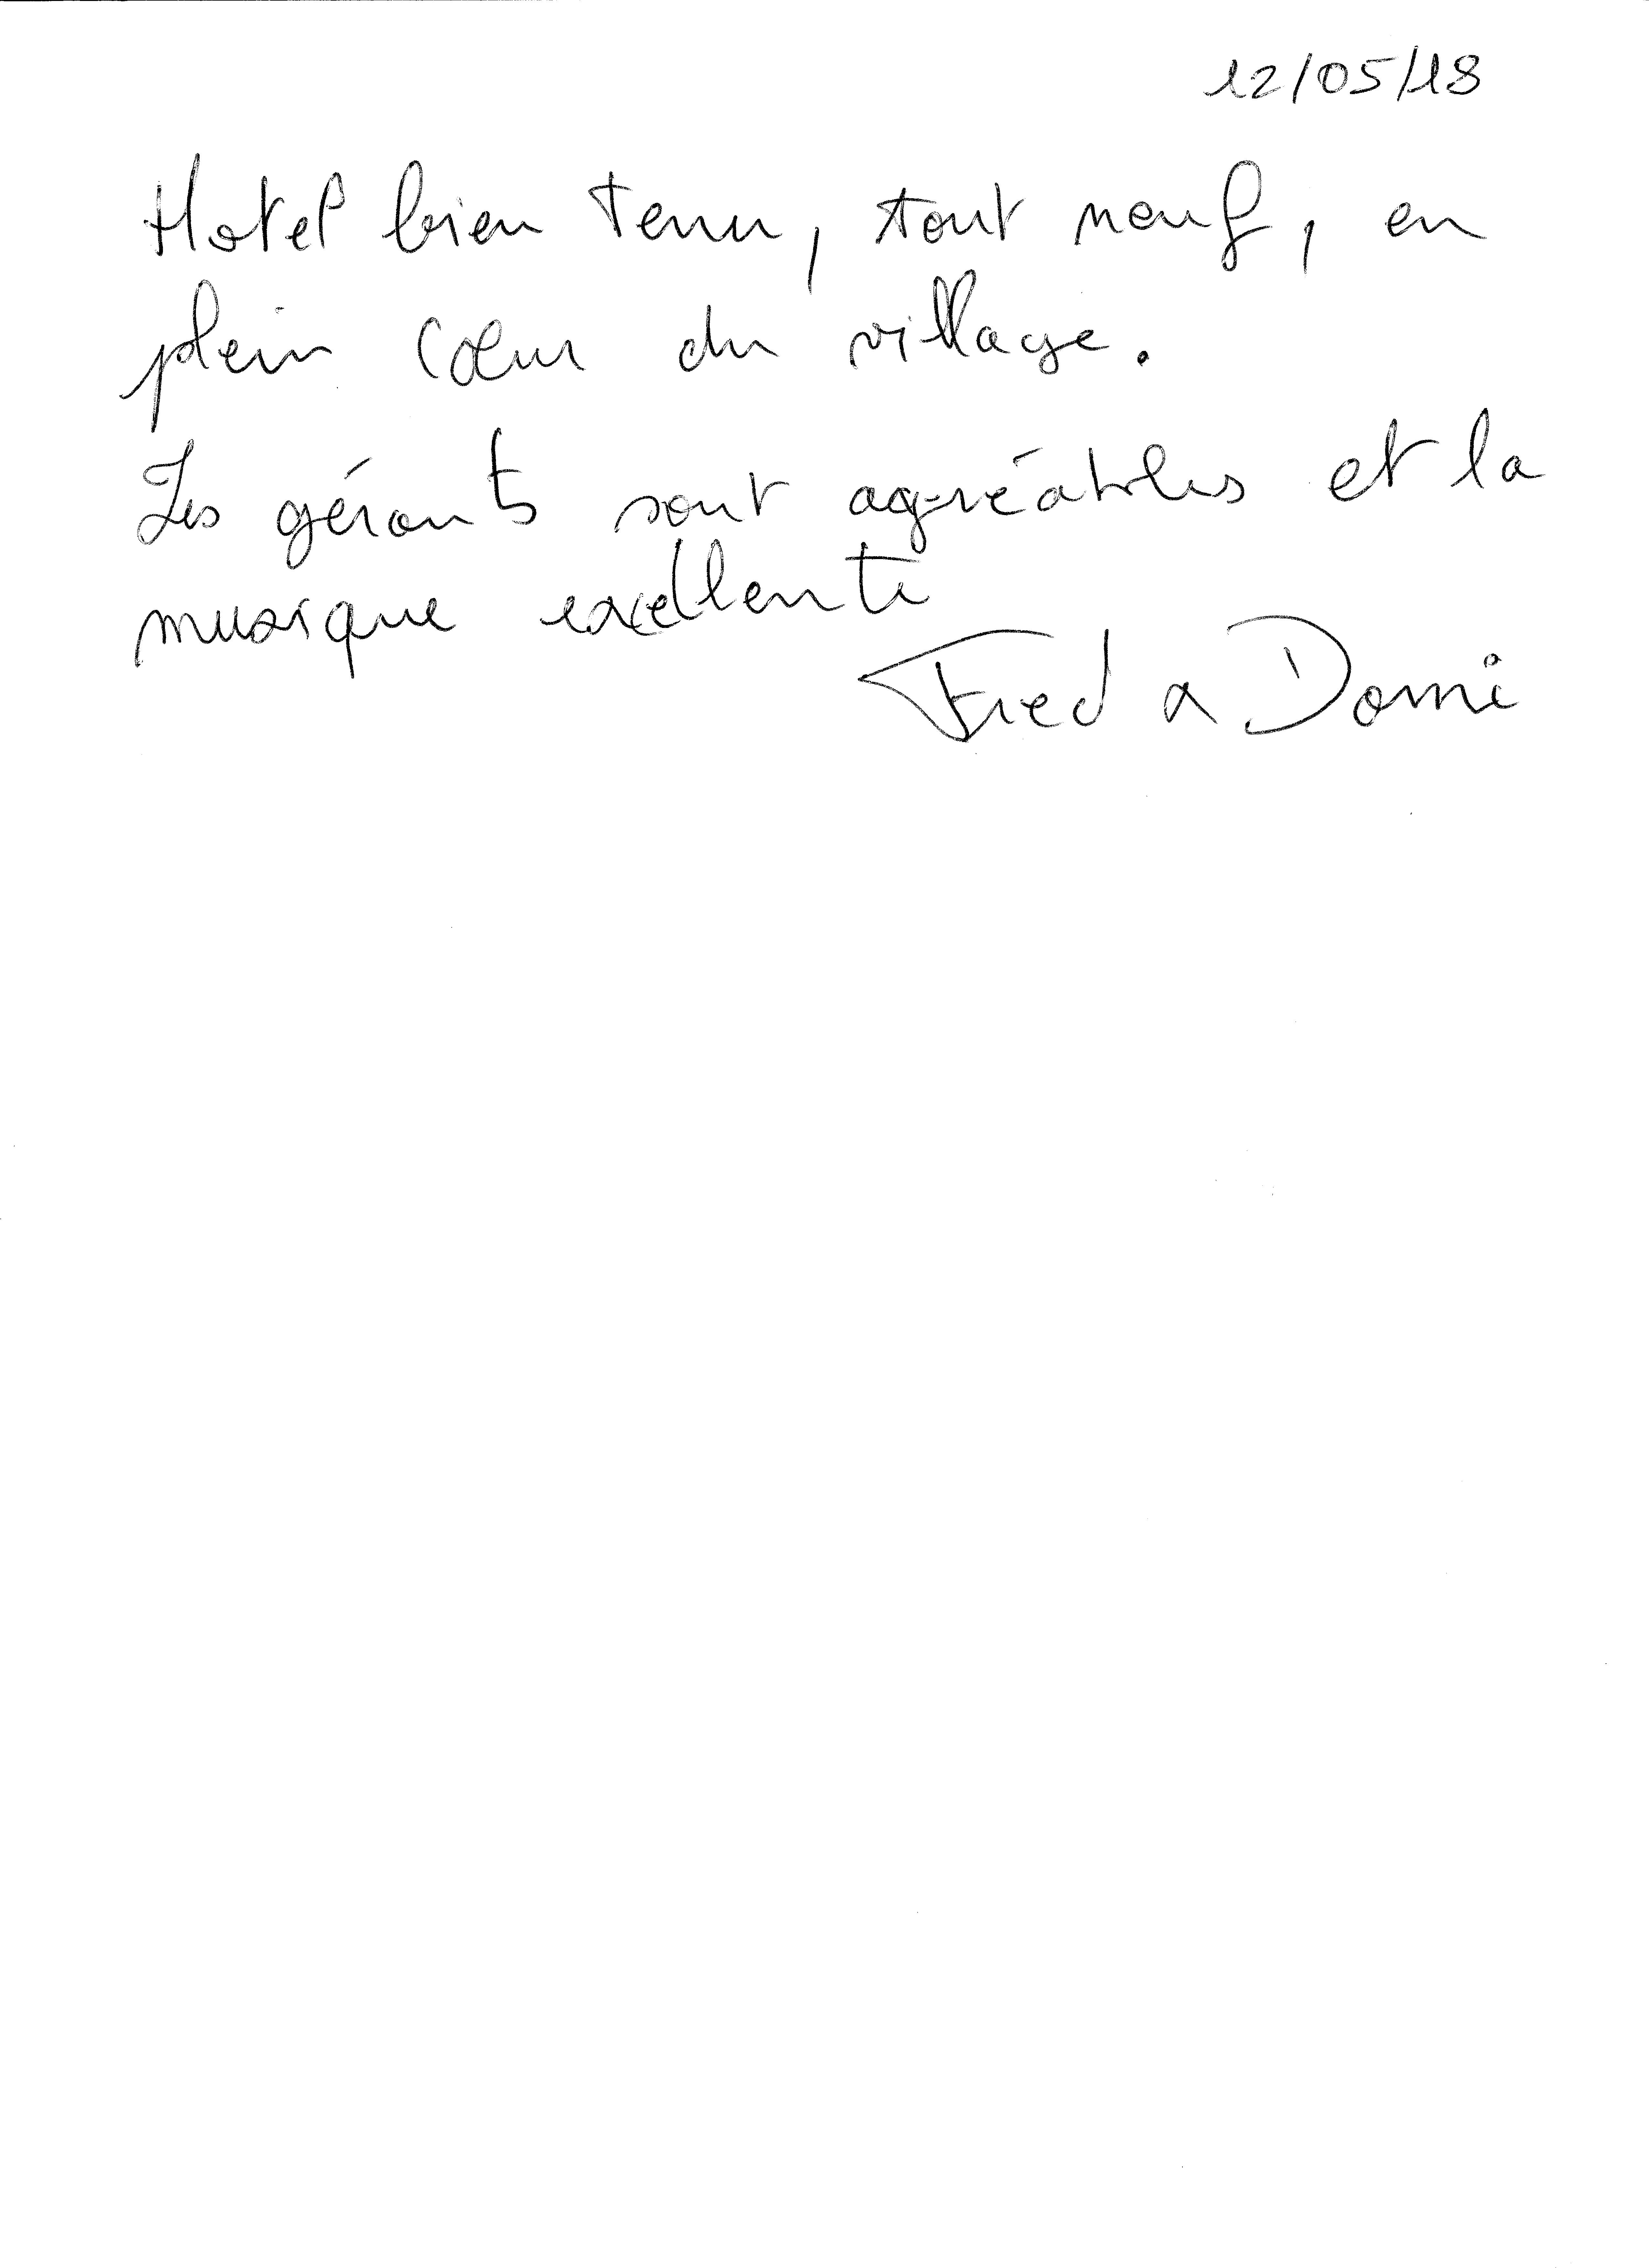 12/05/18
Hotel bien tenu, tout neuf, en
plein cœur du village.
Les gérants sont agréables et la
musique excellente
Fred & Domi